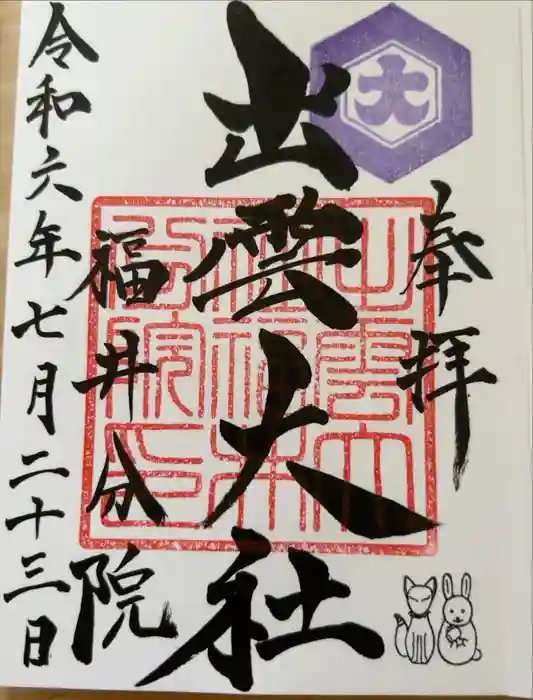 奉拝
大
出雲大社
福井分院
令和六年七月二十三日
出雲大
社福井
分院印